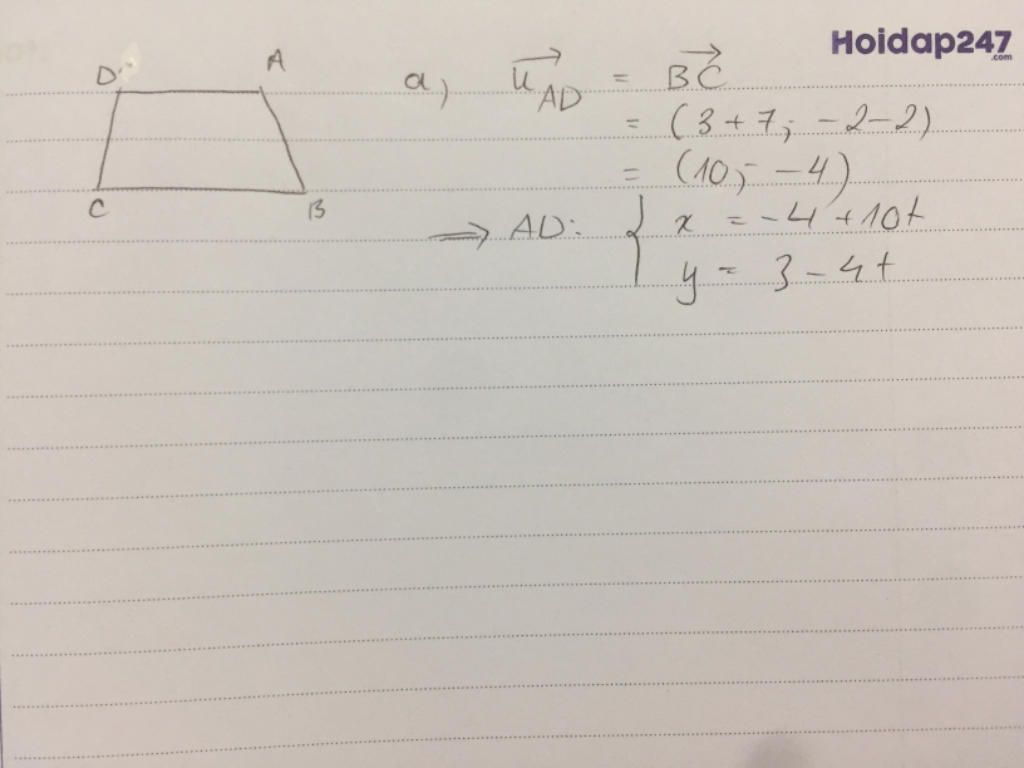 Hoidap247
.com
D A
C B
a, u⃗_AD = BC⃗
= (3 + 7; -2 - 2)
= (10; -4)
⟹ AD: { x = -4 + 10t
y = 3 - 4t